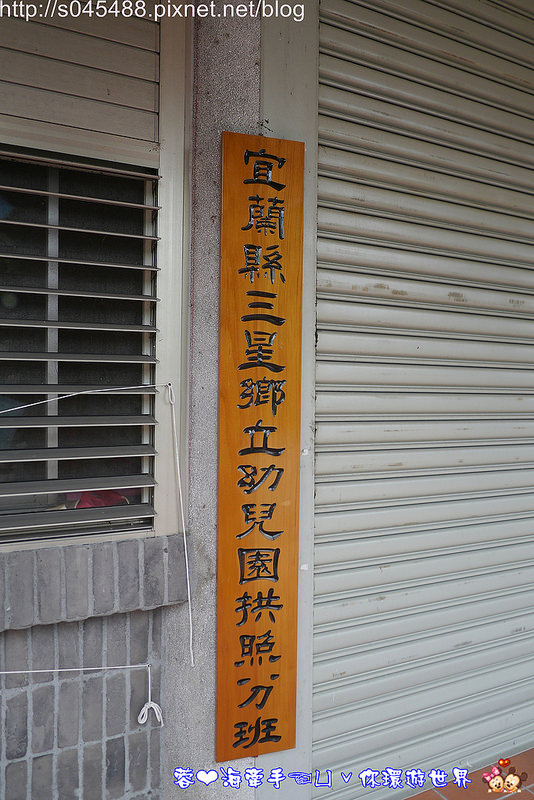 http://s045488.pixnet.net/blog
宜蘭縣三星鄉立幼兒園拱照分班
蓉❤海牽手☜凵v你環遊世界